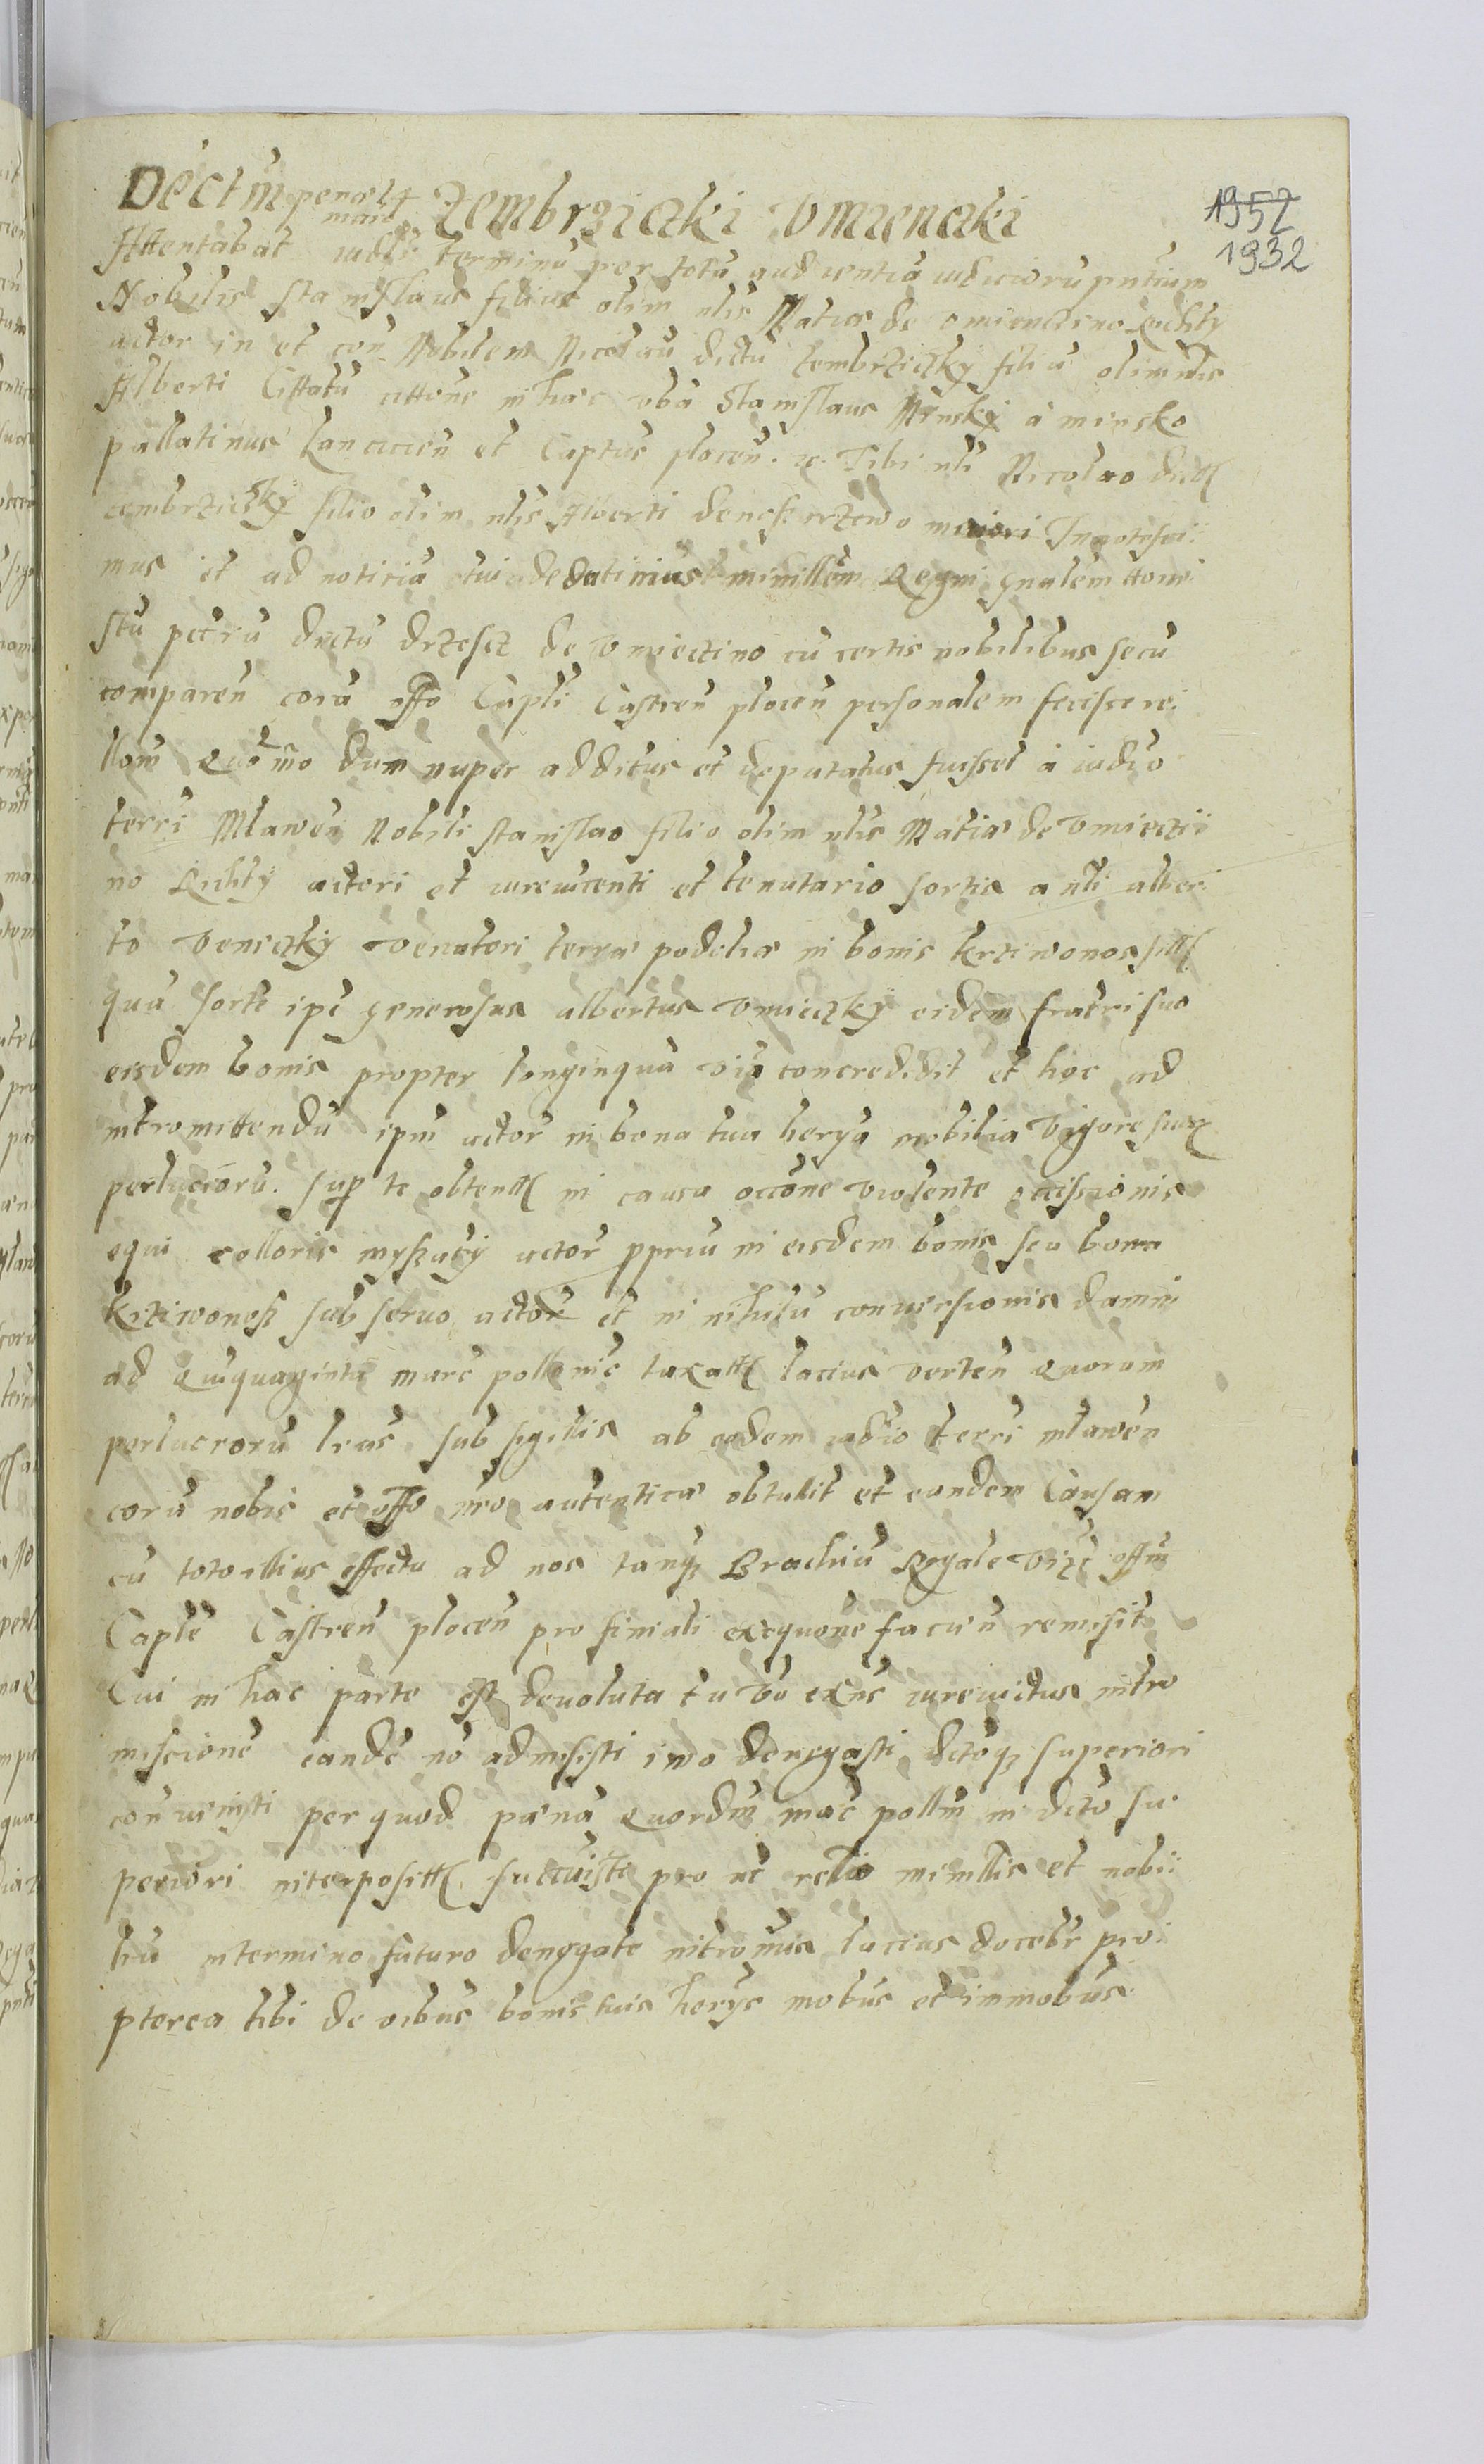 Dectm penale maio Zembrziczki Umienczki
1952
1932
Attentabat iudlr terminu per tota audientia iudicioru pntium
Nobilis Stanislaus filius olim nlis Matias de omienczino Kichthy
actor in et con Nobilem Nicolau dictu Zembrziczky filiu olim nlis
Alberti Cittatu cittone in haec vba Stanislaus Minsky a minsko
pallatinus Lancicien et Captus plocen. Tibi nli Nicolao dictt
zembrziczky filio olim nlis Alberti de maiori Innotesci:
mus et ad noticia tui dedutimus minillem Regni gnalem
stu petru dictu drzesez de Vmieczino cu certis nobilibus secu
comparen cora offo Capli Castren plocen personalem fecisse re:
llom Quo mo dum nuper additus et deputatus fuisset a iudio
terri Mlawen Nobili Stanislao filio olim nlis Matia de Vmieczii
no actori et iureuicenti et tenutario sortis a nli alber:
to Vmieczky Venatori terra podolia in bonis krziwonos sitt
qua sorte ipe generosus albertus Vmieczky eidem fratri suo
eisdem bonis propter longinqua via concredidit et hoc ad
intromittendu ipm actor in bona tua herya mobilia Vigore suoz
perlucroru. sup te obtentt in causa occone violente occissionis
equi colloris myssaty actor ppriu in eisdem bonis seu bona
krziwonoss sub seruo actor et in nihilu conuersionis damni
ad Quiquaginta marc pollonic taxatt lacius verten Quorum
perlucroru lras sub sigillis ab eodem iudio terri mlawen
coru nobis et offo nro autentica obtullit et eandem Causam
cu toto illius effectu ad nos tanq Brachiu Regale viz offm
Caple Castren plocen pro finiali exequone facien remisit
Cui in hac parte est deuoluta tu vo exns iureuictus intro
missione eande no admisisti imo denegasti dctoq superiori
conuenisti per quod pœna Quordm mac pollm in dcto su:
periori interpositt succuisti pro ut relio minillis et nobi:
liu in termino futuro denegate intromis lacius docebr pro:
pterea tibi de oibus bonis tuis herys mobus et immobus